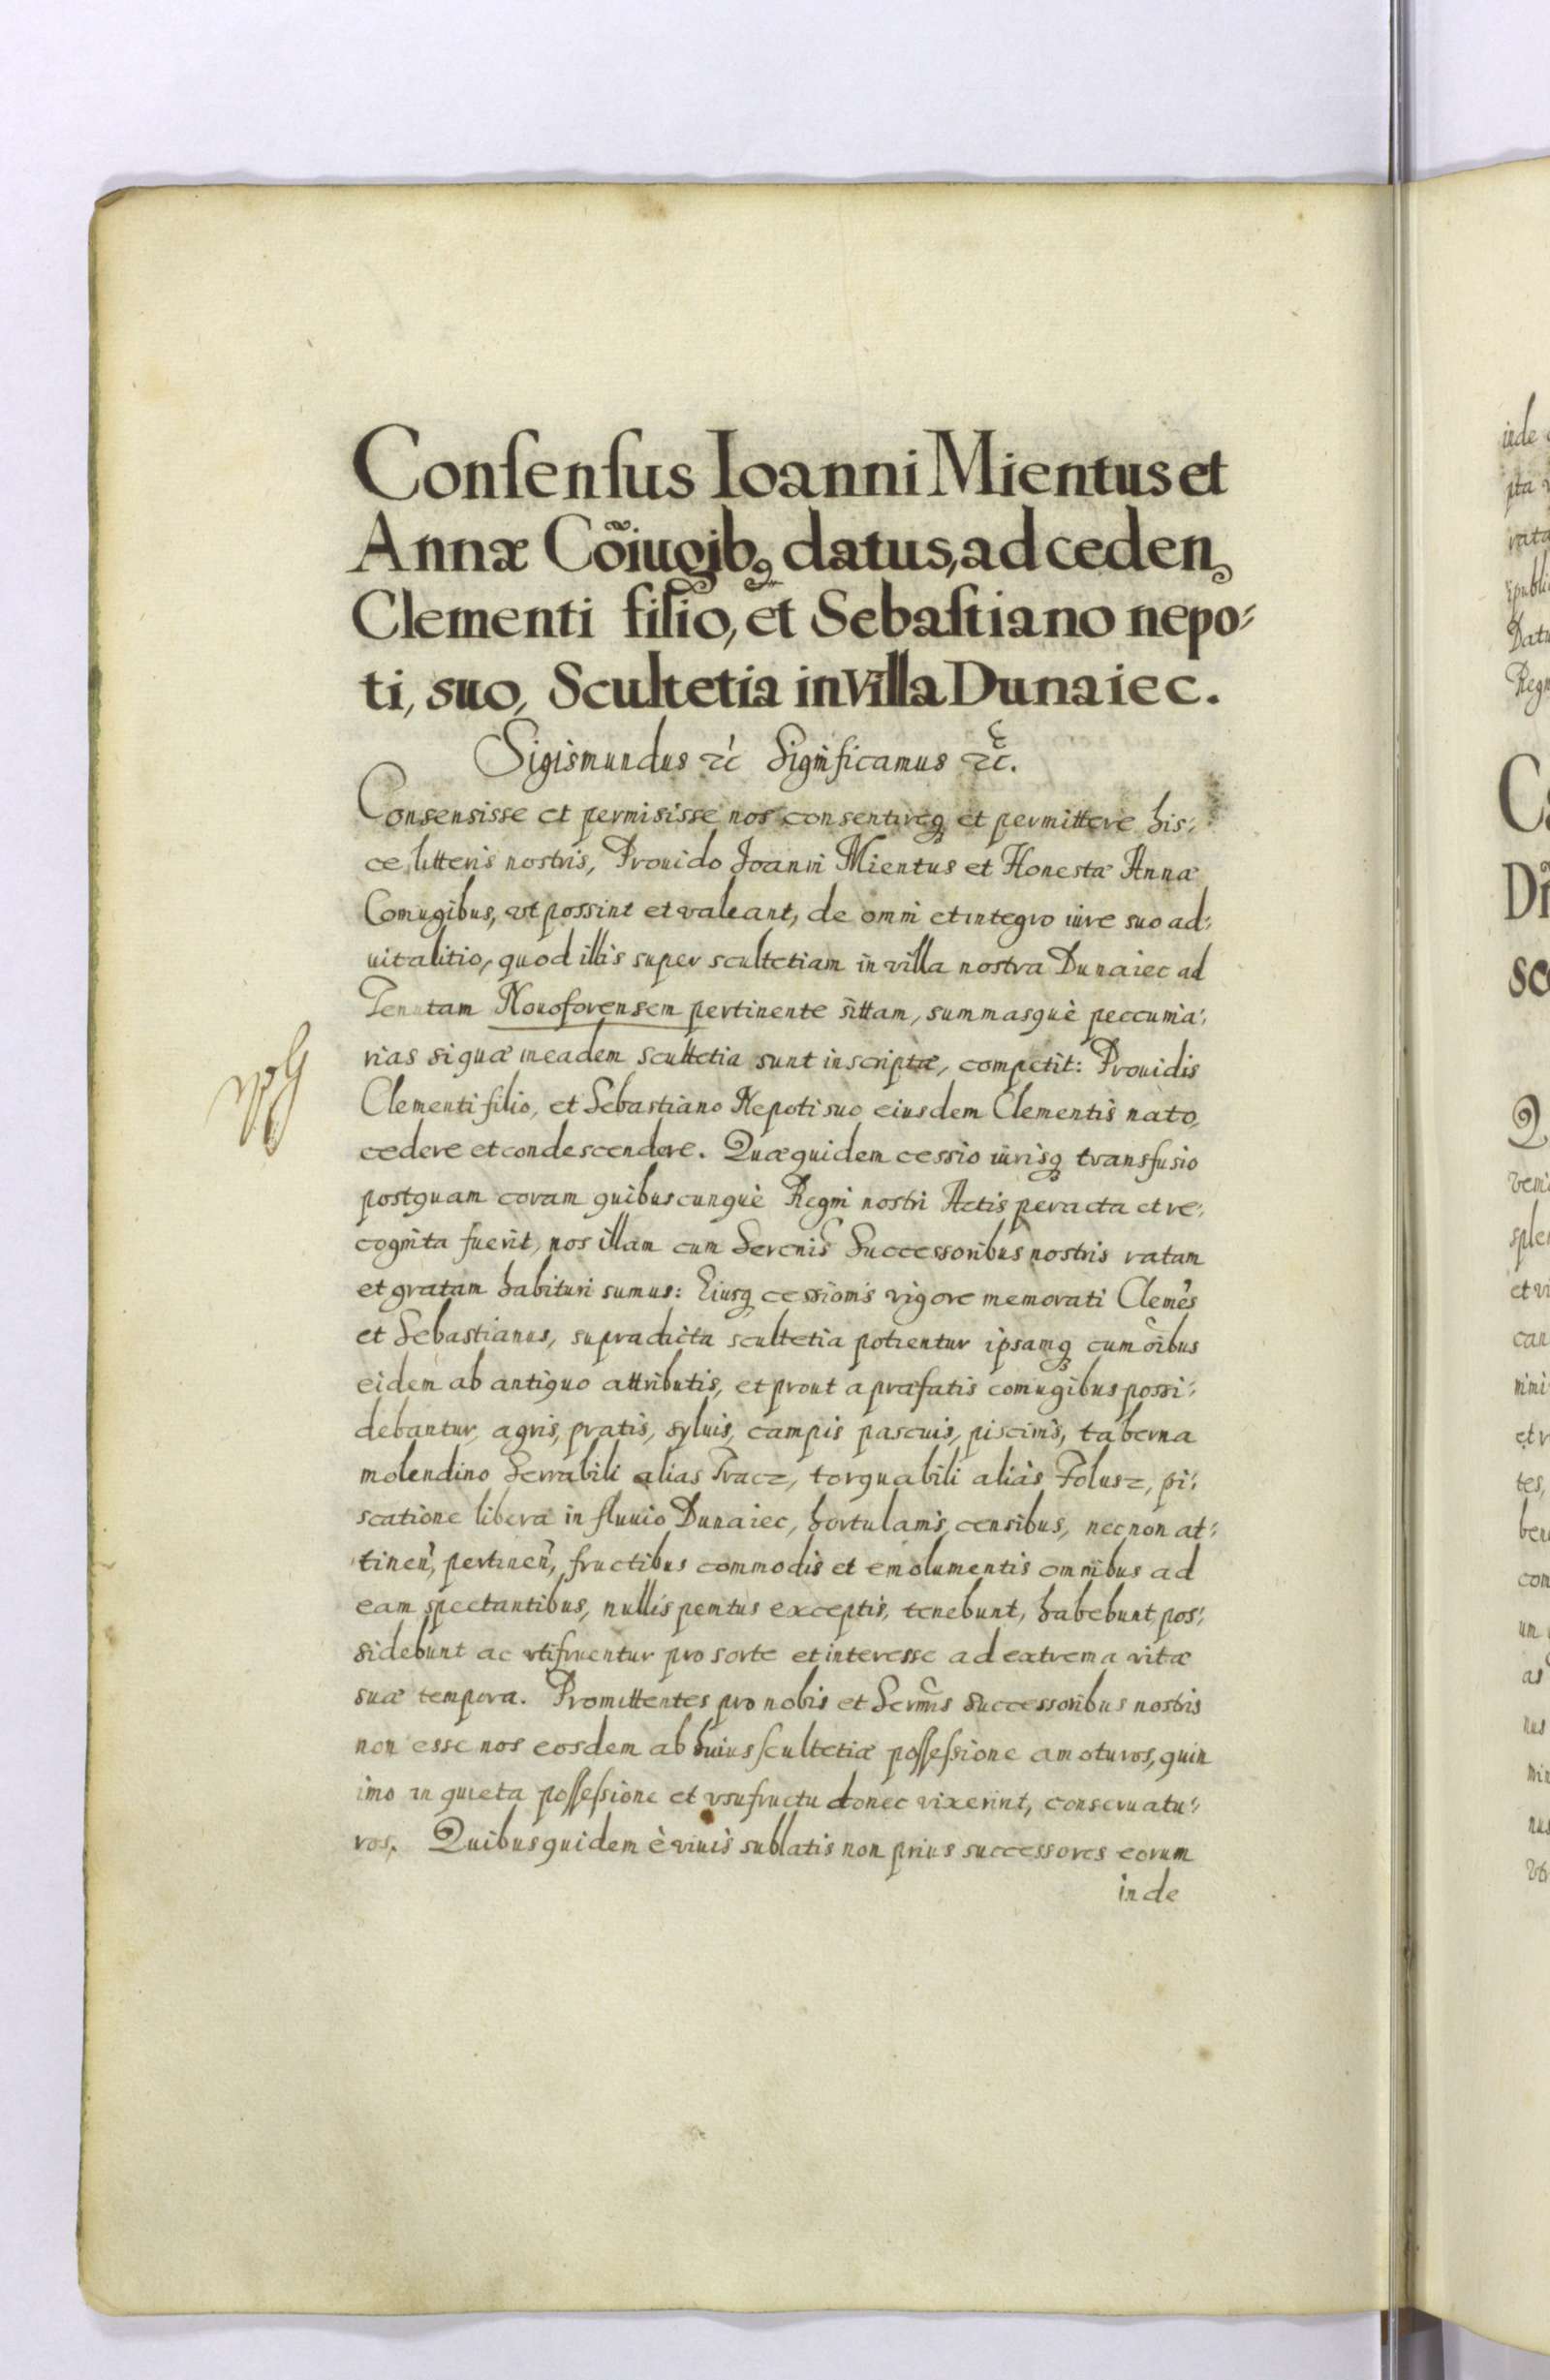 Consensus Ioanni Mientus et
Annæ Cõiugibꝯ datus, ad ceden̄
Clementi filio, et Sebastiano nepo-
ti, suo, Scultetia in Villa Dunaiec.
Sigismundus etc Significamus etc.
Consensisse et permisisse nos consentireqꝫ et permittere his-
ce litteris nostris, Prouido Joanni Mientus et Honestæ Annæ
Coniugibus, vt possint et valeant, de omni et integro iure suo ad-
uitalitio, quod illis super scultetiam in villa nostra Dunaiec ad
Tenutam Nouoforensem pertinente sittam, summasquè peccunia-
rias si quæ in eadem scultetia sunt inscriptæ, competit: Prouidis
Clementi filio, et Sebastiano Nepoti suo eiusdem Clementis nato,
cedere et condescendere. Quæ quidem cessio iurisqꝫ transfusio
postquam coram quibuscunquè Regni nostri Actis peracta et re-
cognita fuerit, nos illam cum Serenis Successoribus nostris ratam
et gratam habituri sumus: Eiusqꝫ cessionis vigore memorati Clemẽs
et Sebastianus, supradicta scultetia potientur ipsamqꝫ cum oĩbus
eidem ab antiquo attributis, et prout a præfatis coniugibus possi-
debantur, agris, pratis, syluis, campis pascuis, piscinis, taberna
molendino Serrabili alias Tracz, torquabili aliàs Folusz, pi-
scatione libera in fluuio Dunaiec, hortulanis, censibus, nec non at-
tinen̄, pertinen̄, fructibus commodis et emolumentis omnibus ad
eam spectantibus, nullis penitus exceptis, tenebunt, habebunt, pos-
sidebunt ac vtifruentur pro sorte et interesse ad extrema vitæ
suæ tempora. Promittentes pro nobis et Sermis Successoribus nostris
non esse nos eosdem ab huius scultetiæ possessione amoturos, quin
imo in quieta possessione et vsufructu donec vixerint, conseruatu-
ros. Quibus quidem è viuis sublatis non prius successores eorum
inde